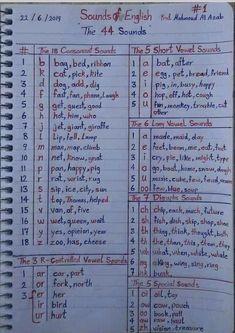 22/6/2019 Sounds of English #1
Prof. Mahmoud Al Azab
The 44 Sounds
# The 18 Consonant Sounds
1 b bag, bed, ribbon
2 k cat, pick, kite
3 d dog, add, dig
4 f fast, fan, phone, laugh
5 g get, guest, good
6 h hot, him, who
7 j jet, giant, giraffe
8 l lip, fell, lamp
9 m man, map, climb
10 n net, know, gnat
11 p pan, happy, pig
12 r rat, wrist, rug
13 s sip, ice, city, sun
14 t top, Thomas, helped
15 v van, of, five
16 w wet, queen, wait
17 y yes, opinion, year
18 z zoo, has, cheese
The 3 R-Controlled Vowel Sounds
1 ar car, part
2 or fork, north
3 er her
ir bird
ur hurt
The 5 Short Vowel Sounds
1 a bat, after
2 e egg, pet, bread, friend
3 i pig, in, busy, happy
4 o hop, off, hot, cough
5 u fun, monkey, trouble, cut
other
The 6 Long Vowel Sounds
1 a made, maid, day
2 e feet, beam, me, eat, hut
3 i cry, pie, like, might, type
4 o go, boat, home, snow
5 u music, cube, few
6 oo few, blue, soup
The 7 Digraphs Sounds
1 ch chip, each, much, future
2 sh fish, dish, ship, shop, shoe
3 th thing, think, thought, both
4 th the, than, this, them, they
5 wh what, when, white, whale
6 ng king, wing, sing, ring
7 nk bunk
The 5 Special Sounds
1 oi oil, toy
2 ow cow, shout
3 oo book, foot
4 aw saw, haul
5 zh vision, treasure